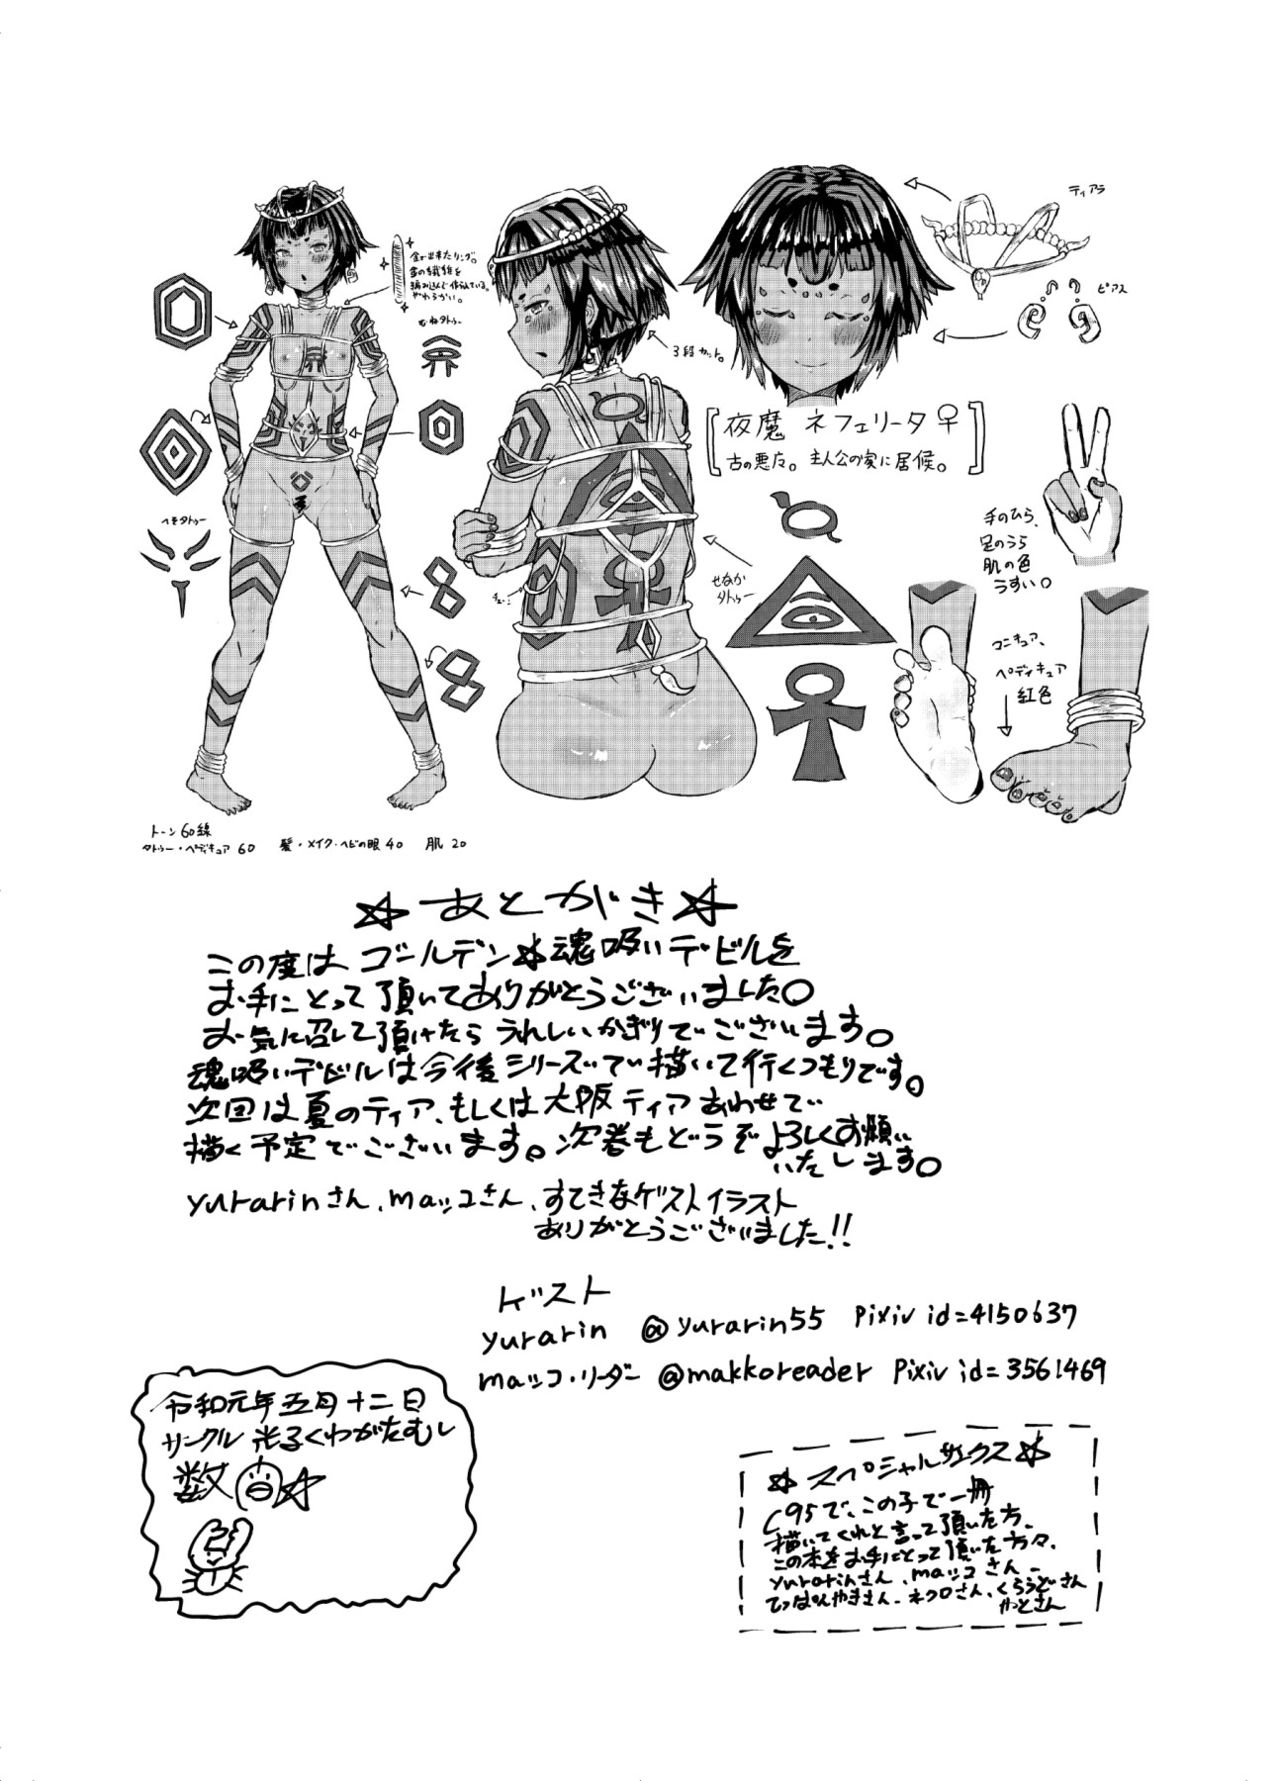 ティアラ
ピアス
金で出来たリング。
金の繊維を
編み込んで作られている。
やわらかい。
むねタトゥー
3段カット。
夜魔 ネフェリータ♀
古の悪魔。主人公の家に居候。
へそタトゥー
せなか
タトゥー
手のひら、
足のうら
肌の色
うすい。
ペディキュア
紅色
トーン60線
タトゥー・ペディキュア 60 髪・メイク・ヘビの眼 40 肌 20
☆あとがき☆
この度はゴールデン☆魂吸いデビルを
お手にとって頂いてありがとうございました。
お気に召して頂けたらうれしいかぎりでございます。
魂吸いデビルは今後シリーズで描いて行くつもりです。
次回は夏のティア、もしくは大阪ティアあわせで
描く予定でございます。次巻もどうぞよろしくお願い
いたします。
yurarinさん、maッコさん、すてきなゲストイラスト
ありがとうございました!!
ゲスト
yurarin @yurarin55 Pixiv id=4150637
maッコ・リーダー @makkoreader Pixiv id=3561469
令和元年五月十二日
サークル 光るくわがたむし
数
☆スペシャルサンクス☆
C95で、この子で一冊
描いてくれと言って頂いた方、
この本をお手にとって頂いた方々、
yurarinさん、maッコさん、
てっぱんやきさん、ネクロさん、くろうどさん
やとさん